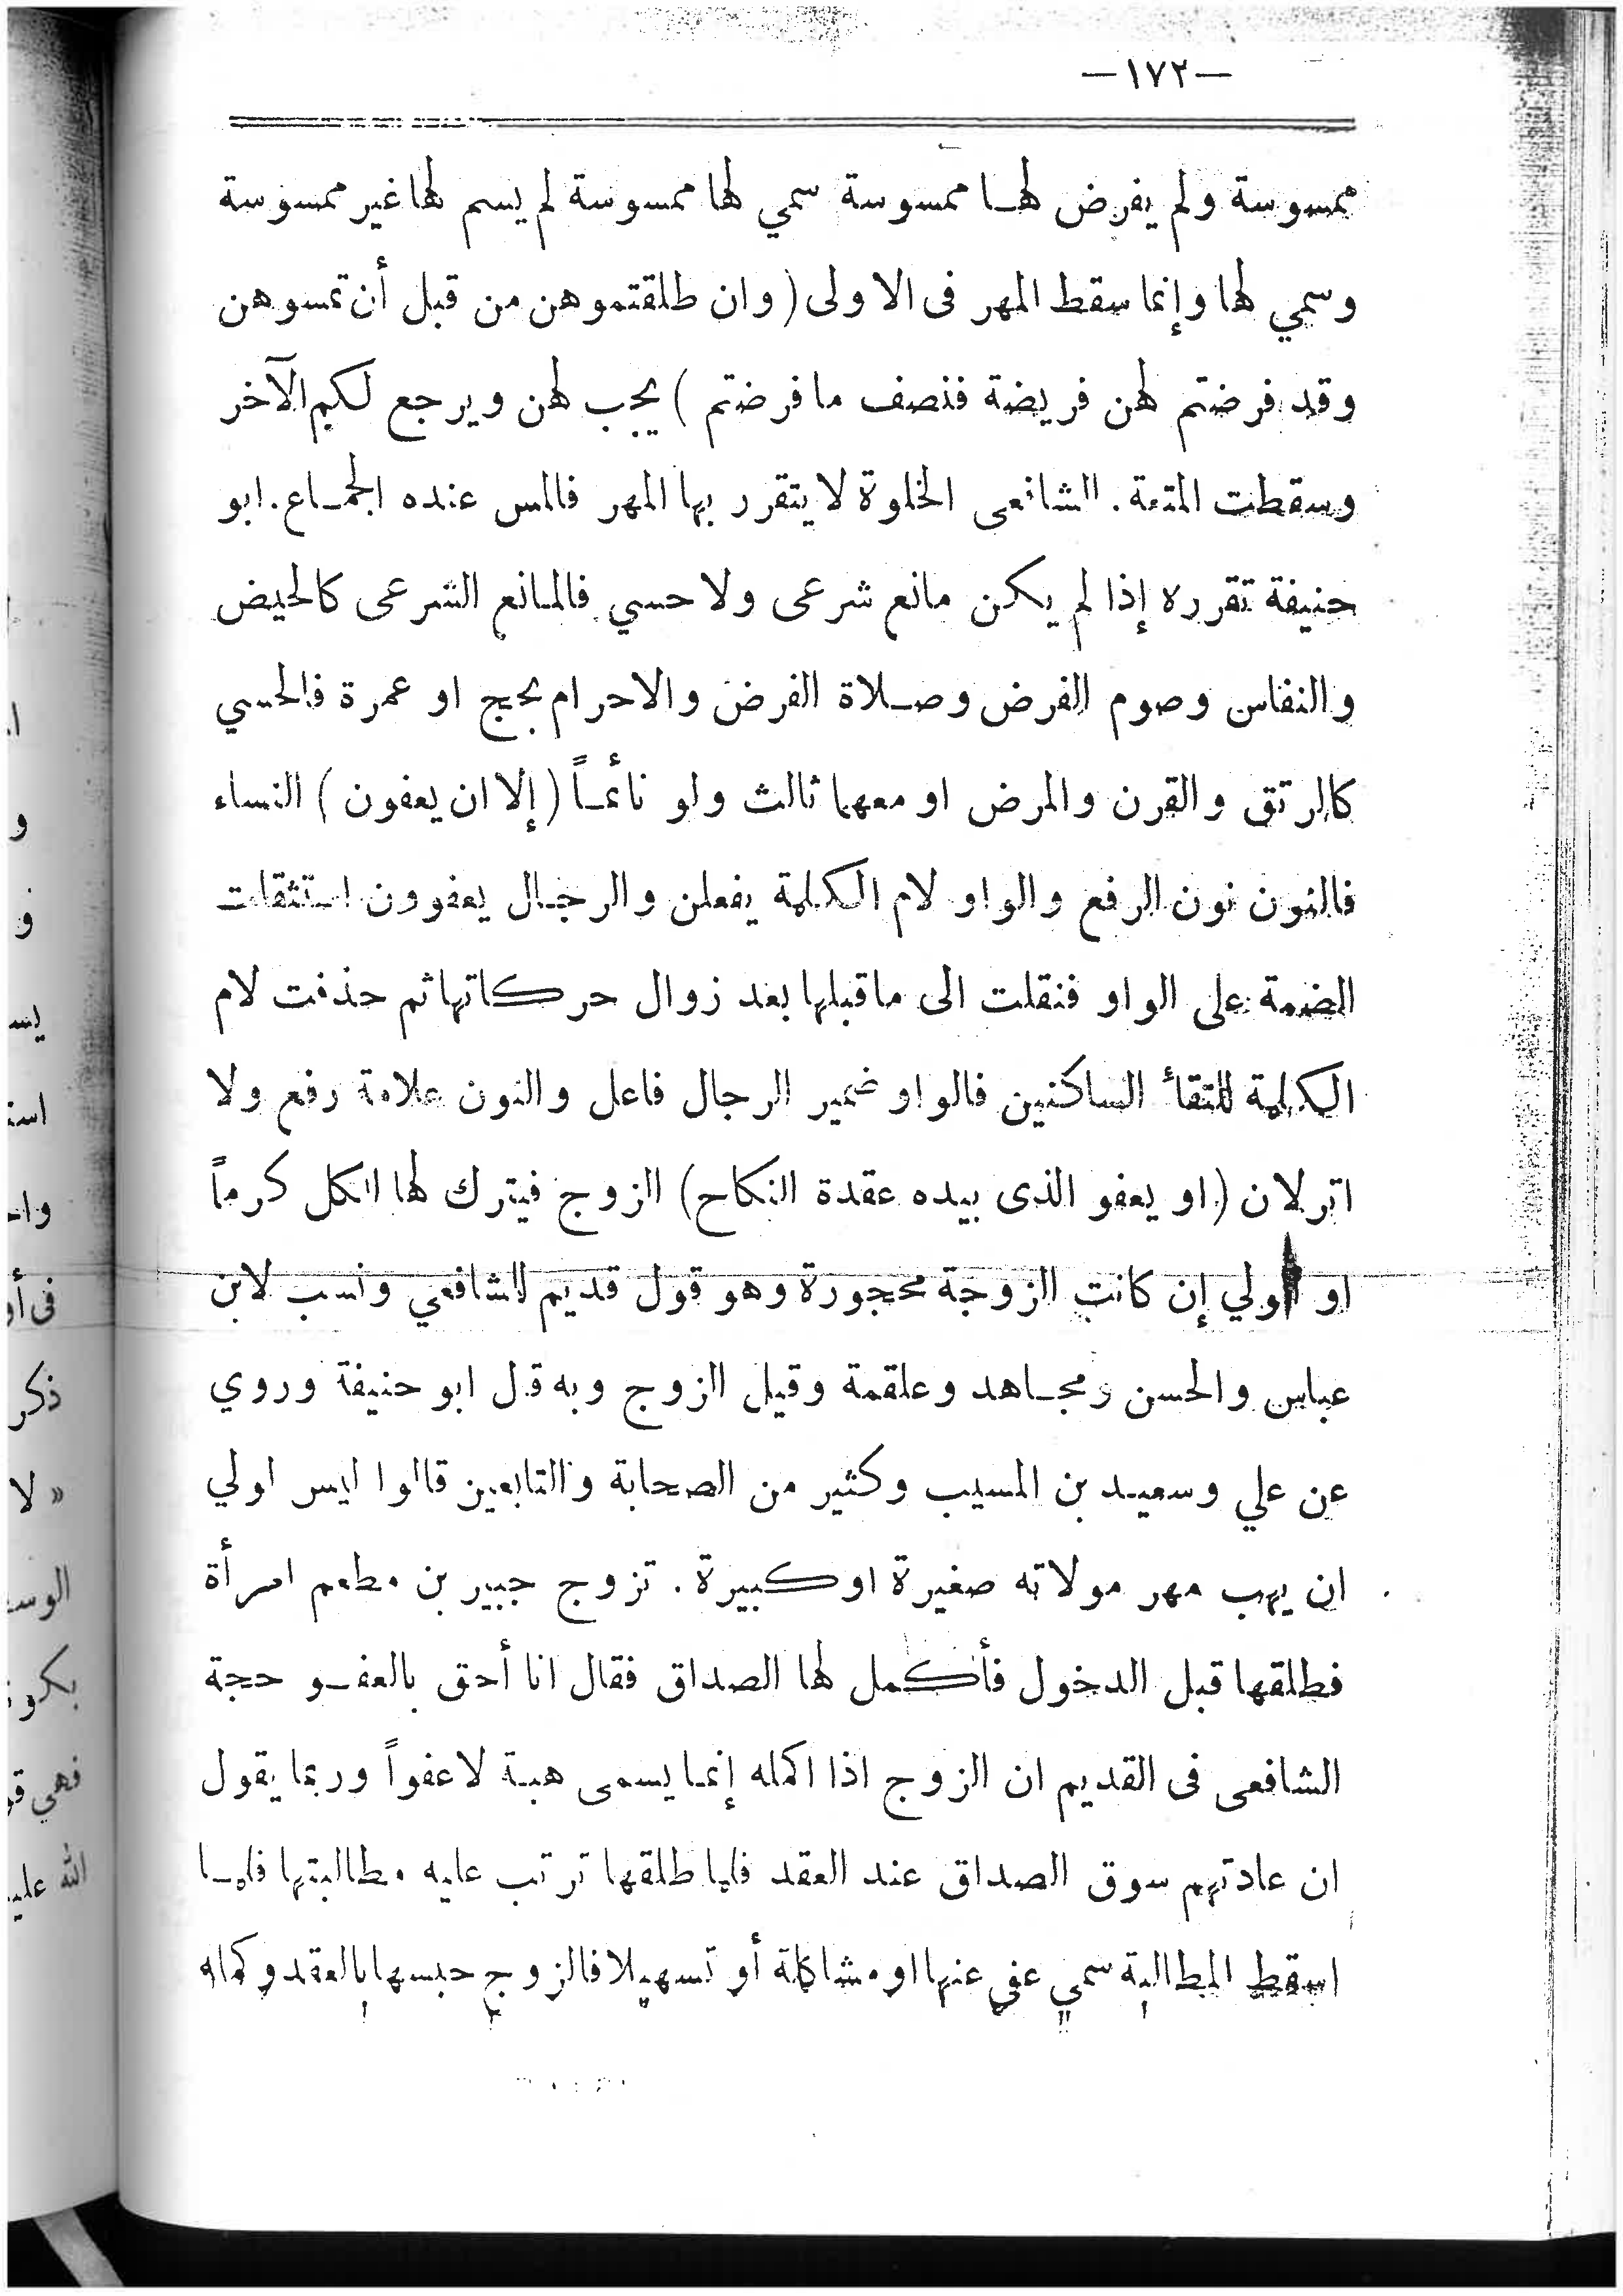 —١٧٢—
ممسوسة ولم يفرض لهـا ممسوسة سمي لها ممسوسة لم يسم لها غير ممسوسة
وسمي لها وإنما سقط المهر فى الاولى (وان طلقتموهن من قبل أن تمسوهن
وقد فرضتم لهن فريضة فنصف ما فرضتم) يجب لهن ويرجع لكم الآخر
وسقطت المتعة. الشافعى الخلوة لا يتقرر بها المهر فالمس عنده الجمـاع. ابو
حنيفة تقرره إذا لم يكن مانع شرعى ولا حسي فالمانع الشرعى كالحيض
والنفاس وصوم الفرض وصـلاة الفرض والاحرام بحج او عمرة فالحسي
كالرتق والقرن والمرض او معهما ثالث ولو نائمـاً (إلا ان يعفون) النساء
فالنون نون الرفع والواو لام الكلمة يفعلن والرجال يعفوون استثقلت
الضمة على الواو فنقلت الى ماقبلها بعد زوال حركاتها ثم حذفت لام
الكلمة للتقأ الساكنين فالواو ضمير الرجال فاعل والنون علامة رفع ولا
اثر لان (او يعفو الذى بيده عقدة النكاح) الزوج فيترك لها الكل كرماً
او الولي إن كانت الزوجة محجورة وهو قول قديم للشافعي ونسب لابن
عباس والحسن ومجـاهد وعلقمة وقيل الزوج وبه قل ابو حنيفة وروي
عن علي وسعيـد بن المسيب وكثير من الصحابة والتابعين قالوا ليس لولي
ان يهب مهر مولاته صغيرة او كبيرة. تزوج جبير بن مطعم امرأة
فطلقها قبل الدخول فأكمل لها الصداق فقال انا أحق بالعفـو حجة
الشافعى فى القديم ان الزوج اذا اكمله إنمـا يسمى هبـة لا عفواً وربما يقول
ان عادتهم سوق الصداق عند العقد فلما طلقها ترتب عليه مطالبتها فلمـا
اسقط المطالبة سمي عفى عنها او مشاكلة أو تسهيلا فالزوج حبسها بالعقد وكماله